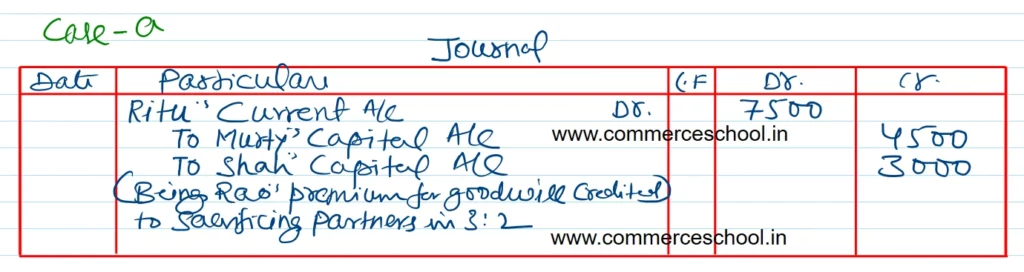 Case-a
Journal
Date Particulars L.F Dr. Cr.
Ritu's Current A/c Dr. 7500
To Murty's Capital A/c www.commerceschool.in 4500
To Shah's Capital A/c 3000
(Being Rao's premium for goodwill credited)
to Sacrificing partners in 3:2
www.commerceschool.in